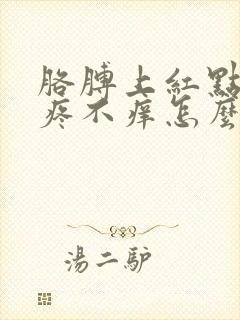 胳膊上紅點
疼不痒怎麼
湯二馿